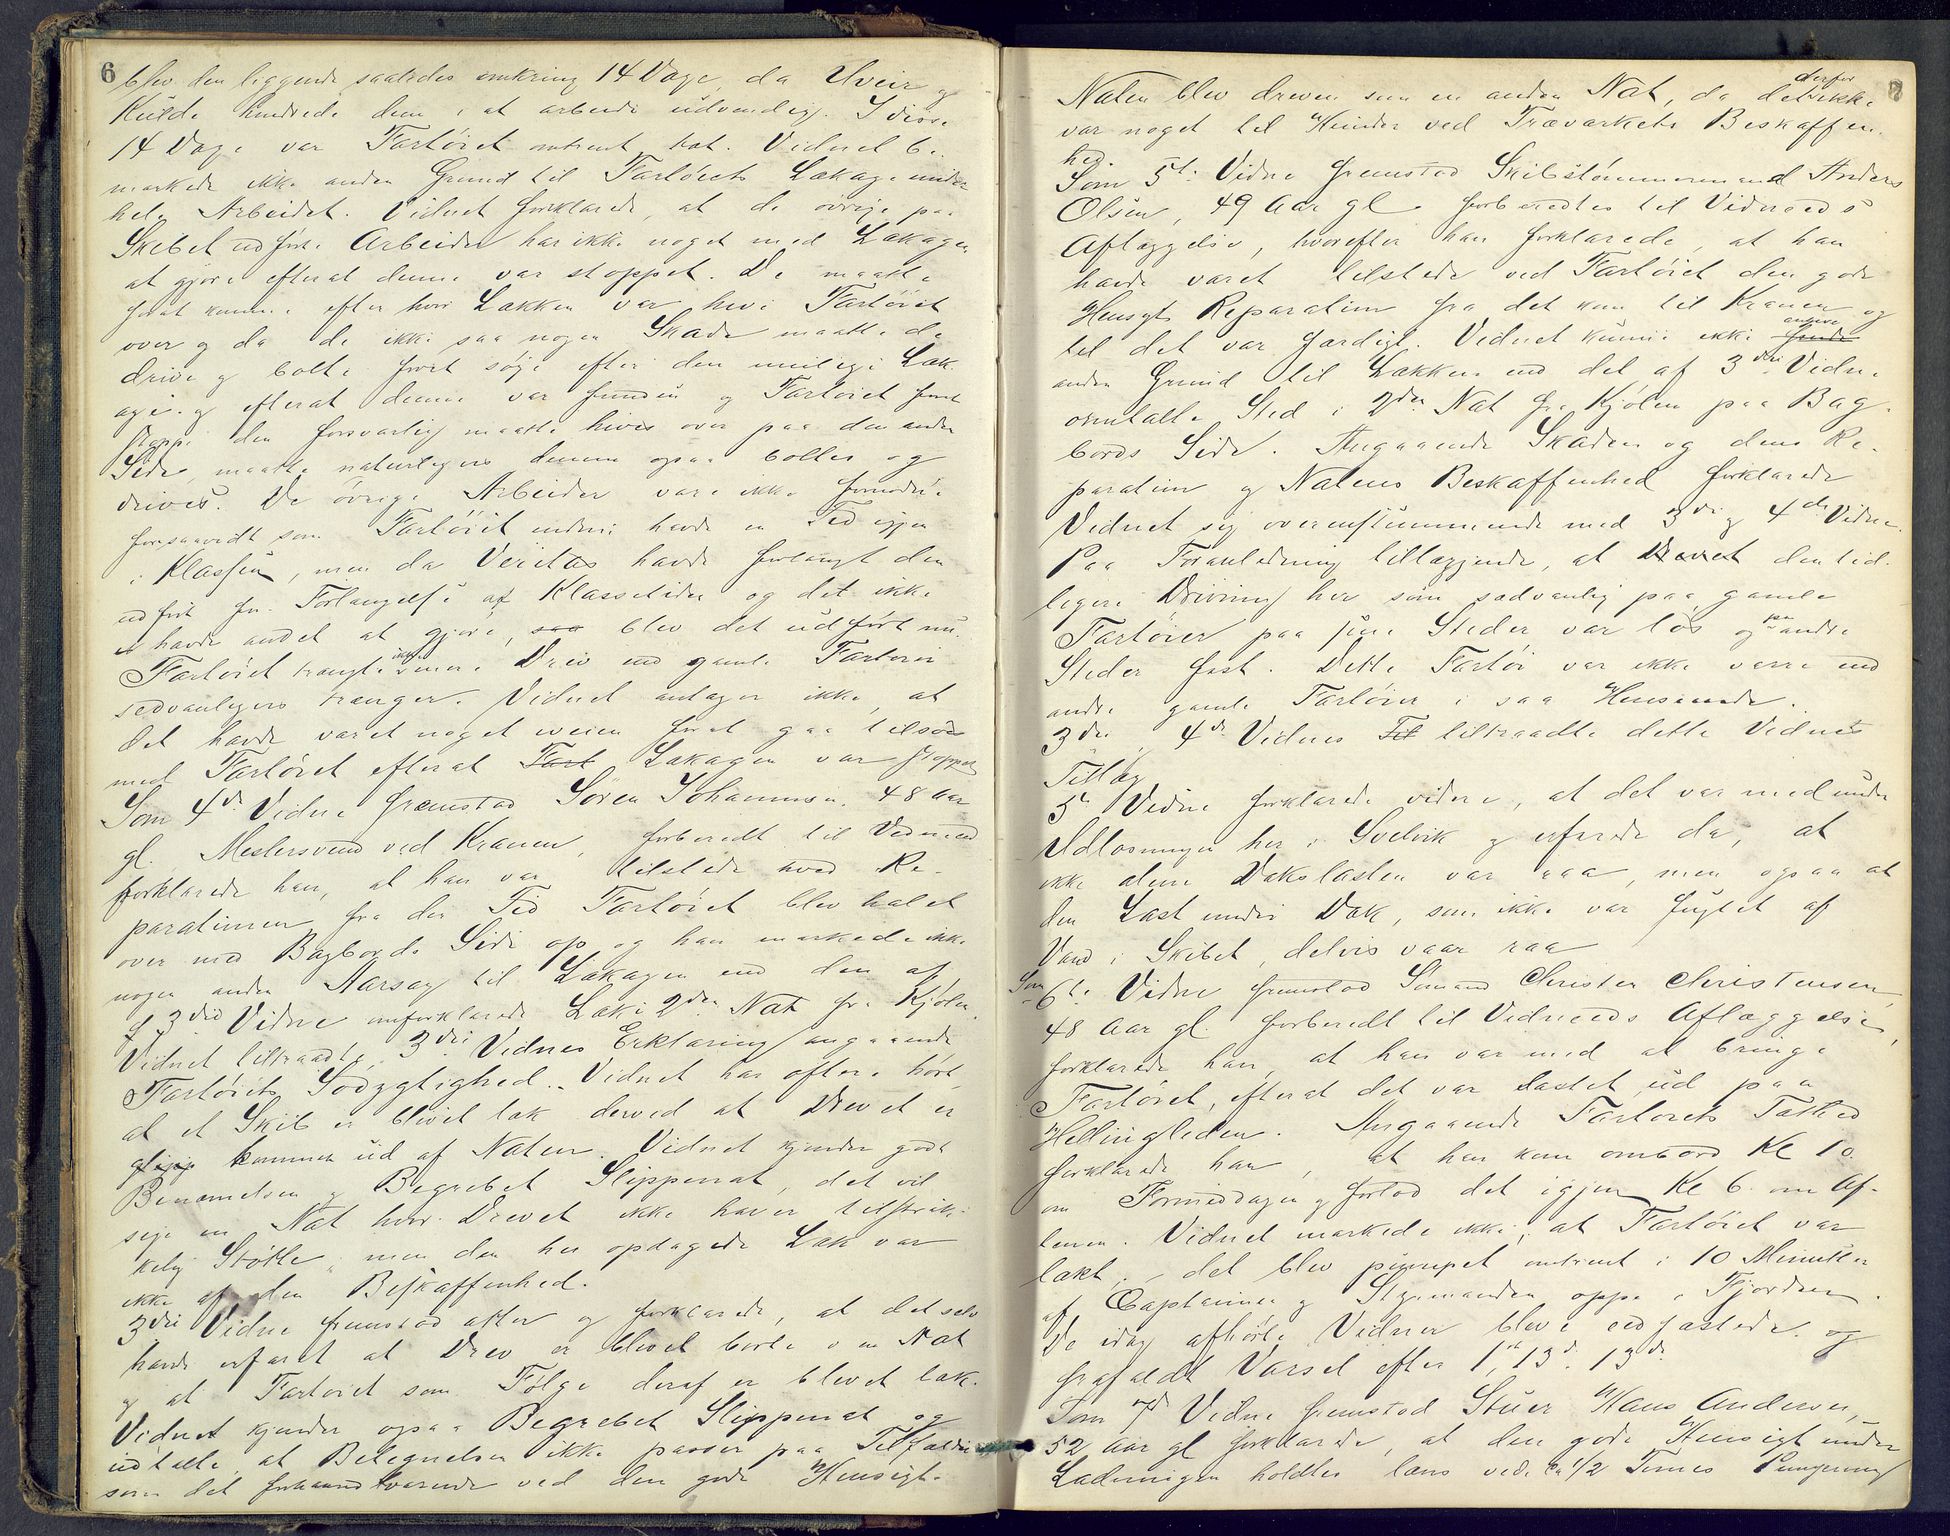 6
blev den liggende saaledes omkring 14 Dage, da Uveir og
Kulde hindrede dem i at arbeide udvendig. I disse
14 Dage var Fartøiet omtrent tæt. Vidnet be-
mærkede ikke anden Grund til Fartøiets Lækage under
hele Arbeidet. Vidnet forklarede, at de øvrige paa
Skibet udførte Arbeider har ikke noget med Lækagen
at gjøre efterat denne var stoppet. De maatte
forat komme efter hvor Lækken var hive Fartøiet
over og da de ikke saa nogen Skade maatte de
drive og bolte forat søge efter den mulige Læk-
age og efterat denne var funden og Fartøiet forat
stoppe den forsvarlig maatte hives over paa den anden
Side, maatte naturligvis denne ogsaa boltes og
drives. De øvrige Arbeider vare ikke fornødne
forsaavidt som Fartøiet endnu havde en Tid igjen
i Klassen, men da Veritas havde forlangt den
udført for Forlængelse af Klassetiden og det ikke
havde andet at gjøre, saa blev det udført nu.
Fartøiet trængte ikke mere Drev end gamle Fartøier
sedvanligvis trænger. Vidnet antager ikke, at
det havde været noget iveien forat gaa tilsøs
med Fartøiet efterat Fart Lækagen var stoppet
Som 4de Vidne fremstod Sören Johannesen, 48 Aar
gl. Mestersvend ved Kranen, forberedt til Vidneed
forklarede han, at han var tilstede ved Re-
parationen fra den Tid Fartøiet blev halet
over med Bagbords Side op og han mærkede ikke
nogen anden Aarsag til Lækagen end den af
3die Vidne omforklarede Læk i 2den Nat fra Kjølen.
Vidnet tiltraadte 3die Vidnes Erklæring angaaende
Fartøiets Södygtighed. Vidnet har oftere hørt,
at et Skib er blevet læk derved at Drevet er
kommen ud af Naten. Vidnet kjender godt
Benævnelsen og Begrebet Slippenat, det vil
sige en Nat hvor Drevet ikke haver tilstræk-
kelig Støtte, men den her opdagede Læk var
ikke af den Beskaffenhed.
3die Vidne fremstod atter og forklarede, at det selv
havde erfaret at Drev er blevet borte i en Nat
og at Fartøiet som Følge deraf er blevet læk.
Vidnet kjender ogsaa Begrebet Slippenat og
udtalte, at Betegnelsen ikke passer paa Tilfældet
som det forhaandværende ved den gode Hensigt.
7
Naten blev dreven som en anden Nat, da det derfor ikke
var noget til Hinder ved Trævarkets Beskaffen-
hed.
Som 5te Vidne fremstod Skibstømmermand Anders
Olsen, 49 Aar gl. forberedtes til Vidneeds
Aflæggelse, hvorefter han forklarede, at han
havde været tilstede ved Fartøiet den gode
Hensigts Reparation fra det kom til Kranen og
til det var færdigt. Vidnet kunne ikke finde angive
anden Grund til Lækken end det af 3die Vidne
omtalte Sted i 2den Nat fra Kjølen paa Bag-
bords Side. Angaaende Skaden og dens Re-
paration og Natens Beskaffenhed forklarede
Vidnet sig overensstemmende med 3die og 4de Vidne.
Paa Foranledning tillæggende, at Drevet den tid-
ligere Drivning her som sædvanlig paa gamle
Fartøier paa sine Steder var løs og paa andre
Steder fast. Dette Fartøi var ikke værre end
andre gamle Fartøier i saa Henseende.
3die, 4de Vidnes Til tiltraadte dette Vidnes
Tillæg
5te Vidne forklarede videre, at det var med under
Udlosningen her i Svelvik og erfarede da, at
ikke alene Dækslasten var raa, men ogsaa at
den Last under Dæk, som ikke var fugtet af
Vand i Skibet, delvis vaar raa
Som
6te Vidne fremstod Sömand Christen Christensen,
48 Aar gl. forberedt til Vidneeds Aflæggelse,
forklarede han, at han var med at bringe
Fartøiet, efterat det var lastet, ud paa
Hellingleden. Angaaende Fartøiets Tæthed
forklarede han, at han kom ombord Kl 10
om Formiddagen og forlod det igjen Kl 6 om Af-
tenen. Vidnet mærkede ikke, at Fartøiet var
lækt, det blev pumpet omtrent i 10 Minutter
af Captainen og Styrmanden oppe i Fjorden.
De idag afhørte Vidner bleve edfæstede og
frafaldt Varsel efter 1, 13, 13
Som 7de Vidne fremstod Stuer Hans Andersen,
52 Aar gl forklarede, at den gode Hensigt under
Ladningen holdtes læns ved ca 1/2 Times Pumpning